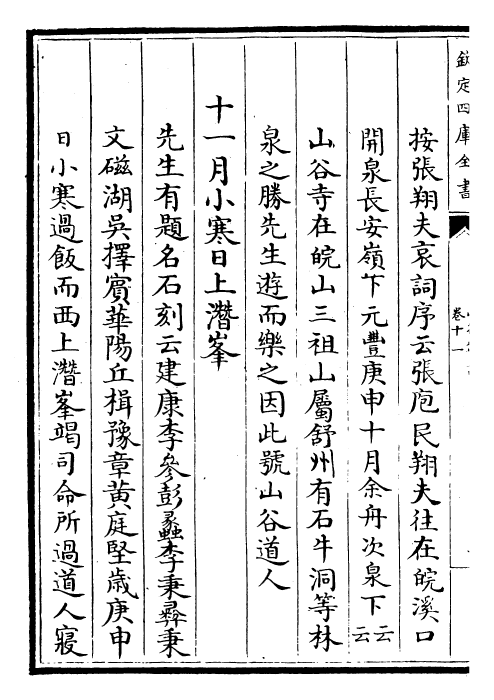 欽定四庫全書
卷十一
按張翔夫哀詞序云張庖民翔夫往在皖溪口
開泉長安嶺下元豐庚申十月余舟次泉下云云
山谷寺在皖山三祖山屬舒州有石牛洞等林
泉之勝先生遊而樂之因此號山谷道人
十一月小寒日上潛峯
先生有題名石刻云建康李參彭蠡李秉彜秉
文磁湖吳擇賓華陽丘楫豫章黃庭堅歲庚申
日小寒過飯而西上潛峯竭司命所過道人寢